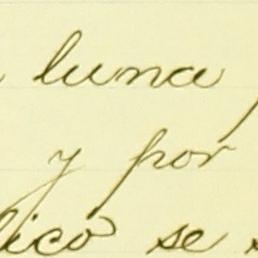 luna
y por
lico se